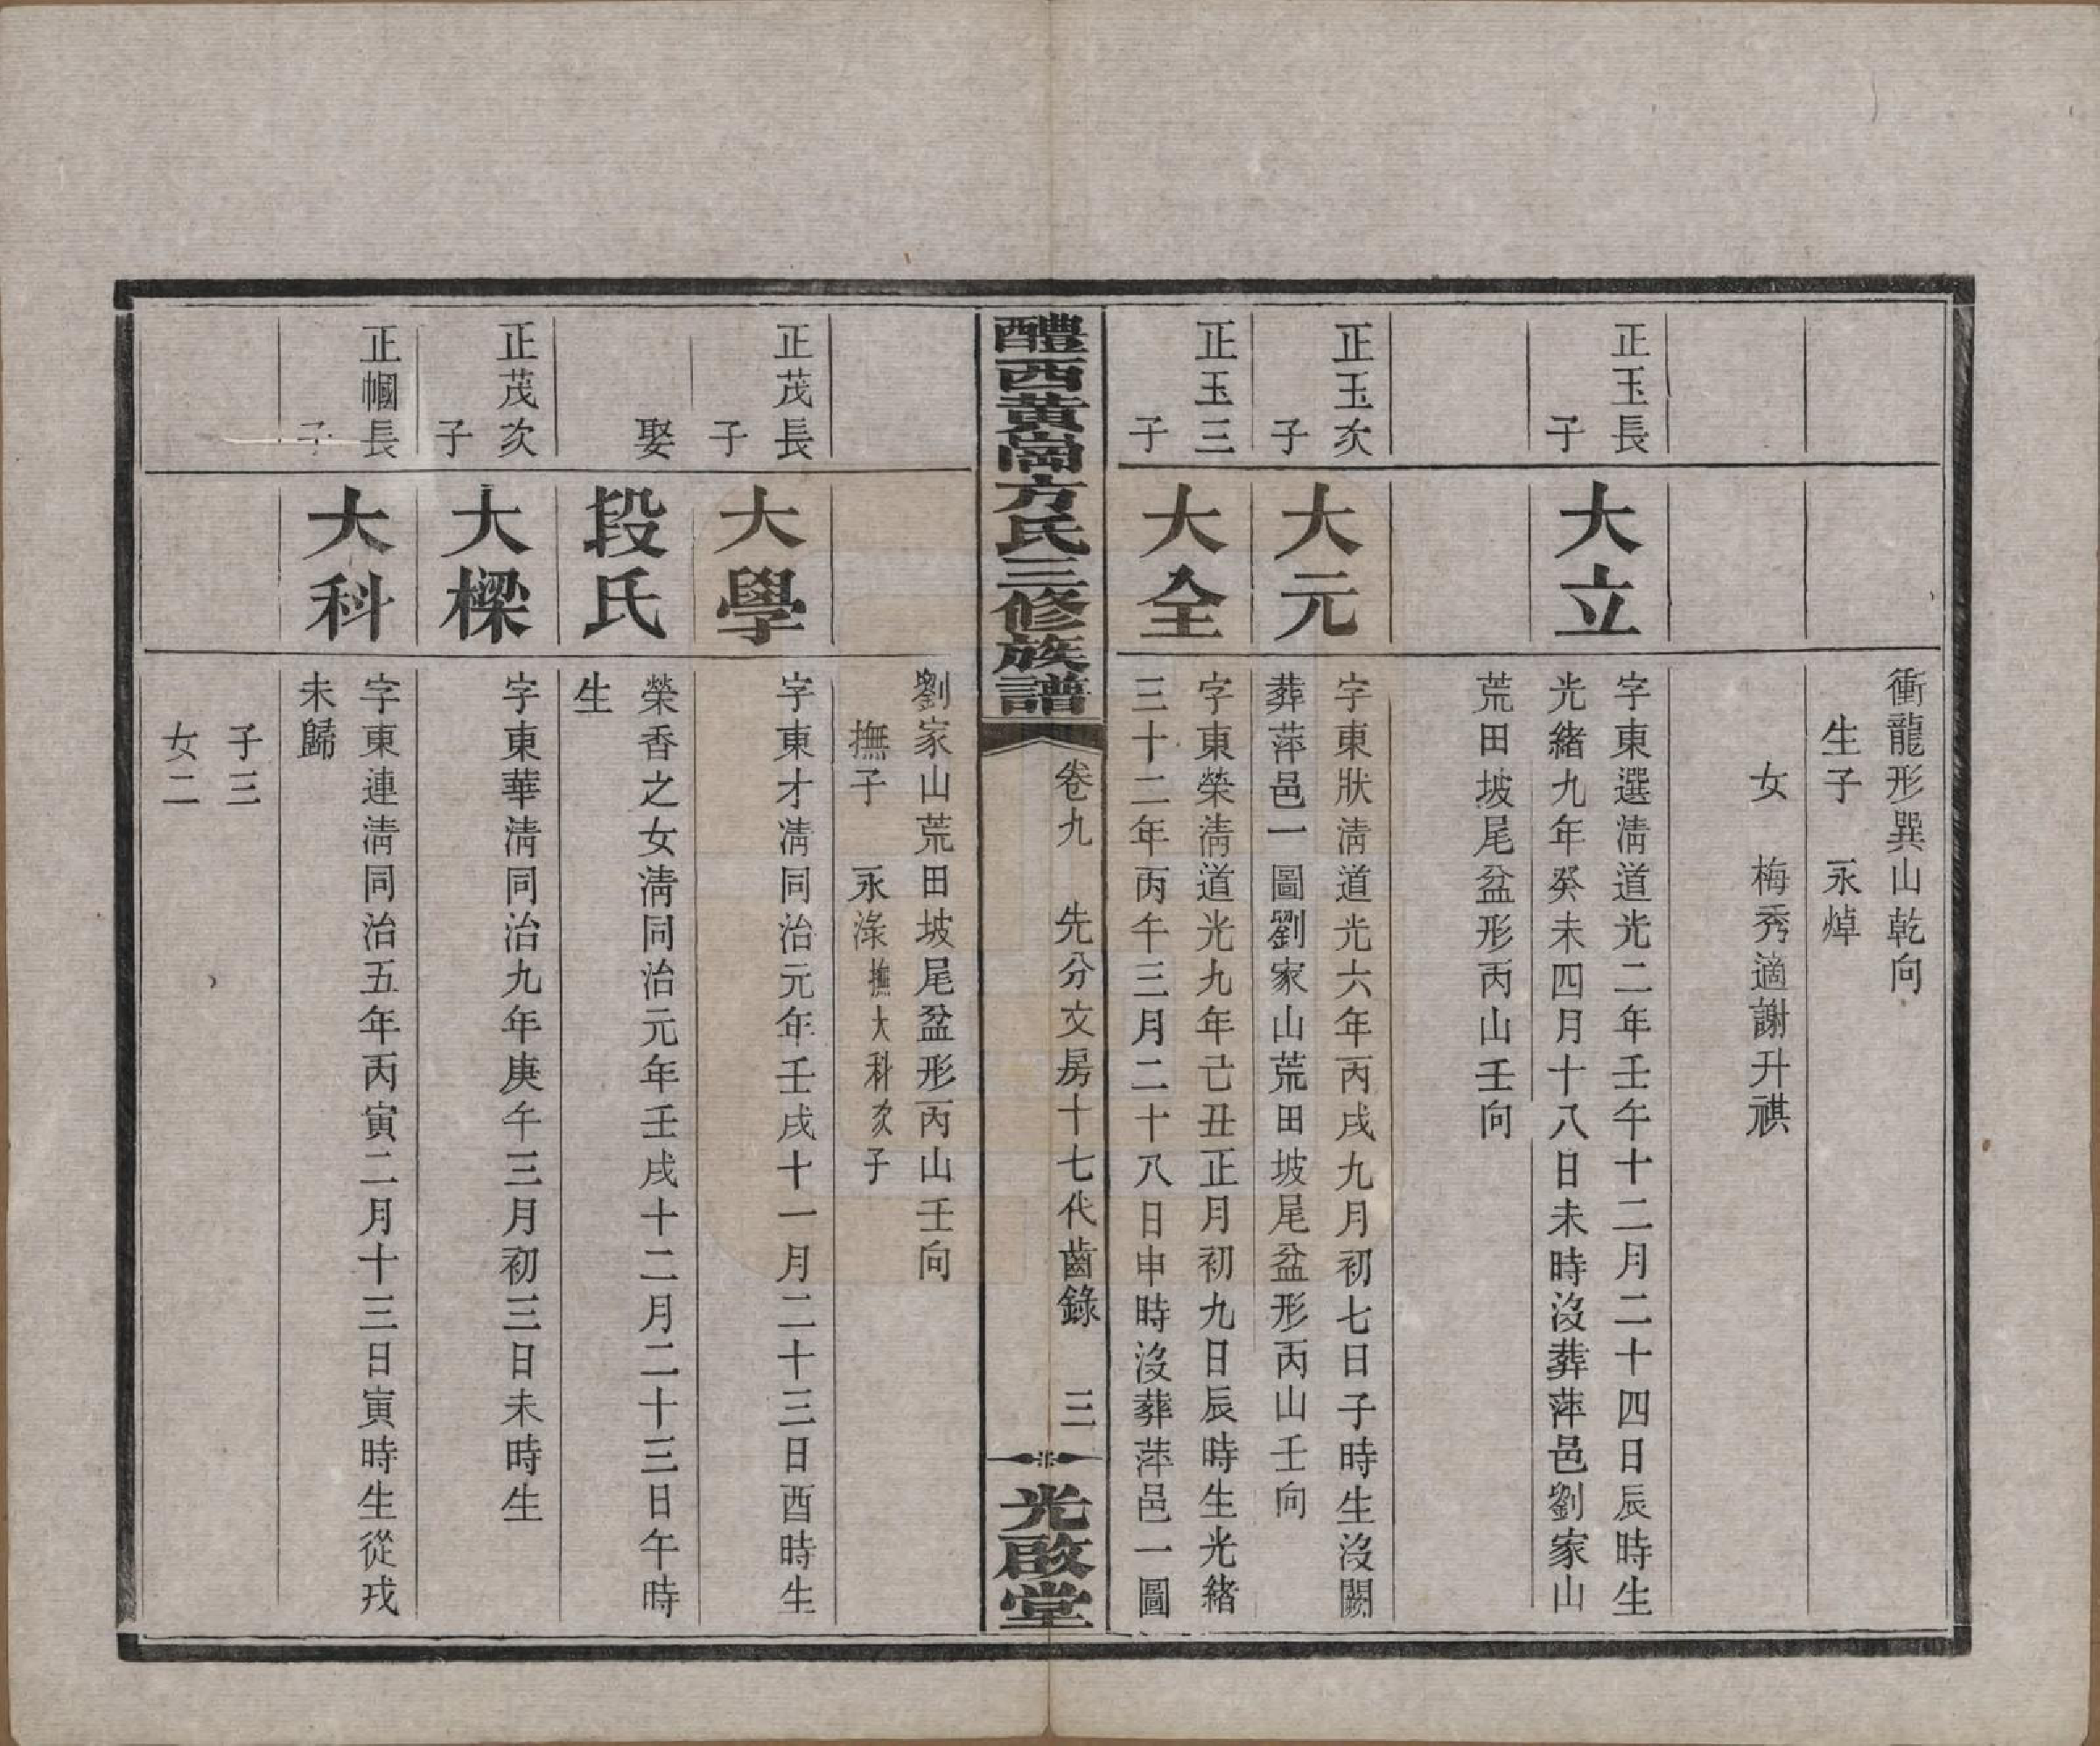 衝龍形巽山乾向
生子　永焯
女　梅秀適謝升祺
正玉長
子
大立
字東選淸道光二年壬午十二月二十四日辰時生
光緖九年癸未四月十八日未時沒葬萍邑劉家山
荒田坡尾盆形丙山壬向
正玉次
子
大元
字東狀淸道光六年丙戌九月初七日子時生沒闕
葬萍邑一圖劉家山荒田坡尾盆形丙山壬向
正玉三
子
大全
字東榮淸道光九年己丑正月初九日辰時生光緖
三十二年丙午三月二十八日申時沒葬萍邑一圖
醴西黃崗方氏三修族譜
卷九　先分文房十七代齒錄　三
光啟堂
劉家山荒田坡尾盆形丙山壬向
撫子　永淥撫大科次子
正茂長
子
大學
字東才淸同治元年壬戌十一月二十三日酉時生
娶
段氏
榮香之女淸同治元年壬戌十二月二十三日午時
生
正茂次
子
大樑
字東華淸同治九年庚午三月初三日未時生
正幗長
子
大科
字東連淸同治五年丙寅二月十三日寅時生從戎
未歸
子三
女二